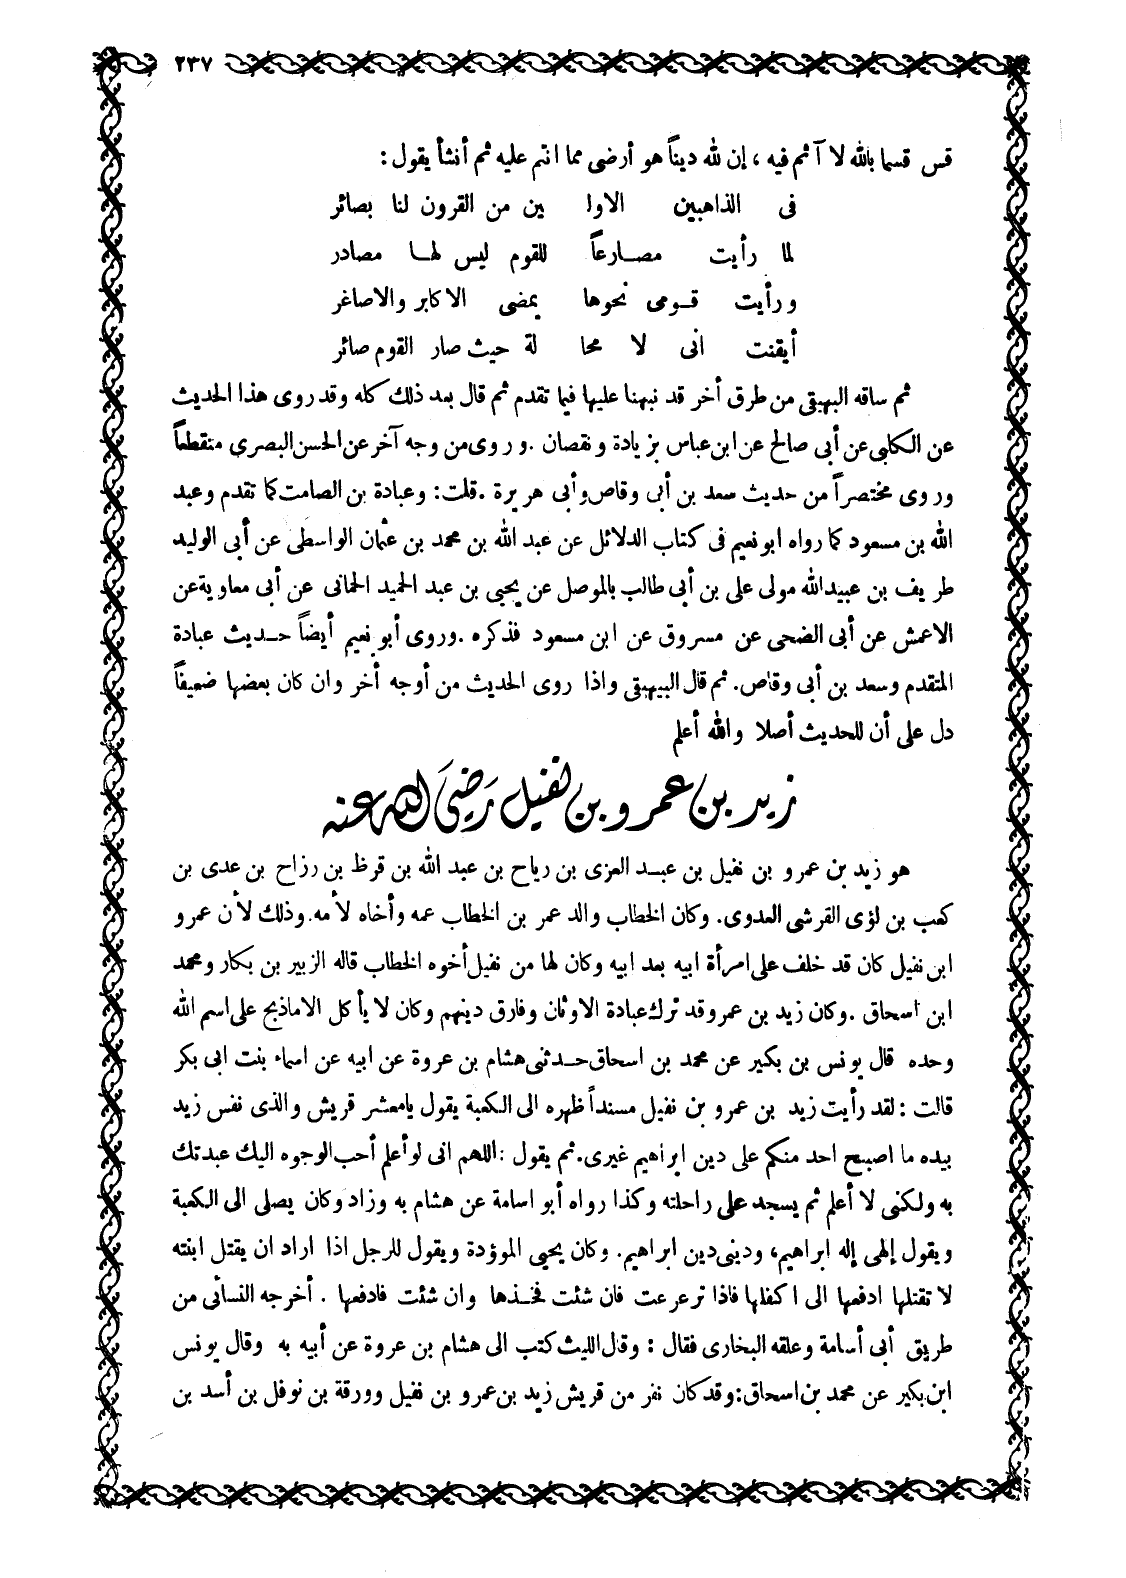 ٢٣٧
قس قسما بالله لا آثم فيه ، إن لله ديناً هو أرضى مما انتم عليه ثم أنشأ يقول :
فى الذاهبين الاولـ ين من القرون لنا بصائر
لما رأيت مصارعاً للقوم ليس لها مصادر
ورأيت قومى نحوها يمضى الاكابر والاصاغر
أيقنت انى لا محا لة حيث صار القوم صائر
ثم ساقه البيهقى من طرق أخر قد نبهنا عليها فيما تقدم ثم قال بعد ذلك كله وقد روى هذا الحديث
عن الكلبى عن أبى صالح عن ابن عباس بزيادة ونقصان . وروى من وجه آخر عن الحسن البصرى منقطعاً
وروى مختصراً من حديث سعد بن أبى وقاص وأبى هريرة . قلت : وعبادة بن الصامت كما تقدم وعبد
الله بن مسعود كما رواه ابو نعيم فى كتاب الدلائل عن عبد الله بن محمد بن عثمان الواسطى عن أبى الوليد
طريف بن عبيد الله مولى على بن أبى طالب بالموصل عن يحيى بن عبد الحميد الحمانى عن أبى معاوية عن
الاعمش عن أبى الضحى عن مسروق عن ابن مسعود فذكره . وروى أبو نعيم أيضاً حديث عبادة
المتقدم وسعد بن أبى وقاص . ثم قال البيهقى واذا روى الحديث من أوجه أخر وان كان بعضها ضعيفاً
دل على أن للحديث أصلا والله أعلم
زيد بن عمرو بن نفيل رَضيَ الله عنه
هو زيد بن عمرو بن نفيل بن عبد العزى بن رياح بن عبد الله بن قرظ بن رزاح بن عدى بن
كعب بن لؤى القرشى العدوى . وكان الخطاب والد عمر بن الخطاب عمه وأخاه لأمه . وذلك لأن عمرو
ابن نفيل كان قد خلف على امرأة ابيه بعد ابيه وكان لها من نفيل أخوه الخطاب قاله الزبير بن بكار ومحمد
ابن اسحاق . وكان زيد بن عمرو قد ترك عبادة الاوثان وفارق دينهم وكان لا يأكل الا ماذبح على اسم الله
وحده قال يونس بن بكير عن محمد بن اسحاق حدثنى هشام بن عروة عن ابيه عن اسماء بنت ابى بكر
قالت : لقد رأيت زيد بن عمرو بن نفيل مسنداً ظهره الى الكعبة يقول يامعشر قريش والذى نفس زيد
بيده ما اصبح احد منكم على دين ابراهيم غيرى . ثم يقول : اللهم انى لو أعلم أحب الوجوه اليك عبدتك
به ولكنى لا أعلم ثم يسجد على راحلته وكذا رواه أبو اسامة عن هشام به وزاد وكان يصلى الى الكعبة
ويقول إلهى إله ابراهيم ، ودينى دين ابراهيم . وكان يحيى الموؤدة ويقول للرجل اذا اراد ان يقتل ابنته
لا تقتلها ادفعها الى اكفلها فاذا ترعرعت فان شئت فخذها وان شئت فادفعها . أخرجه النسائى من
طريق أبى أسامة وعلقه البخارى فقال : وقال الليث كتب الى هشام بن عروة عن أبيه به وقال يونس
ابن بكير عن محمد بن اسحاق : وقد كان نفر من قريش زيد بن عمرو بن نفيل وورقة بن نوفل بن أسد بن